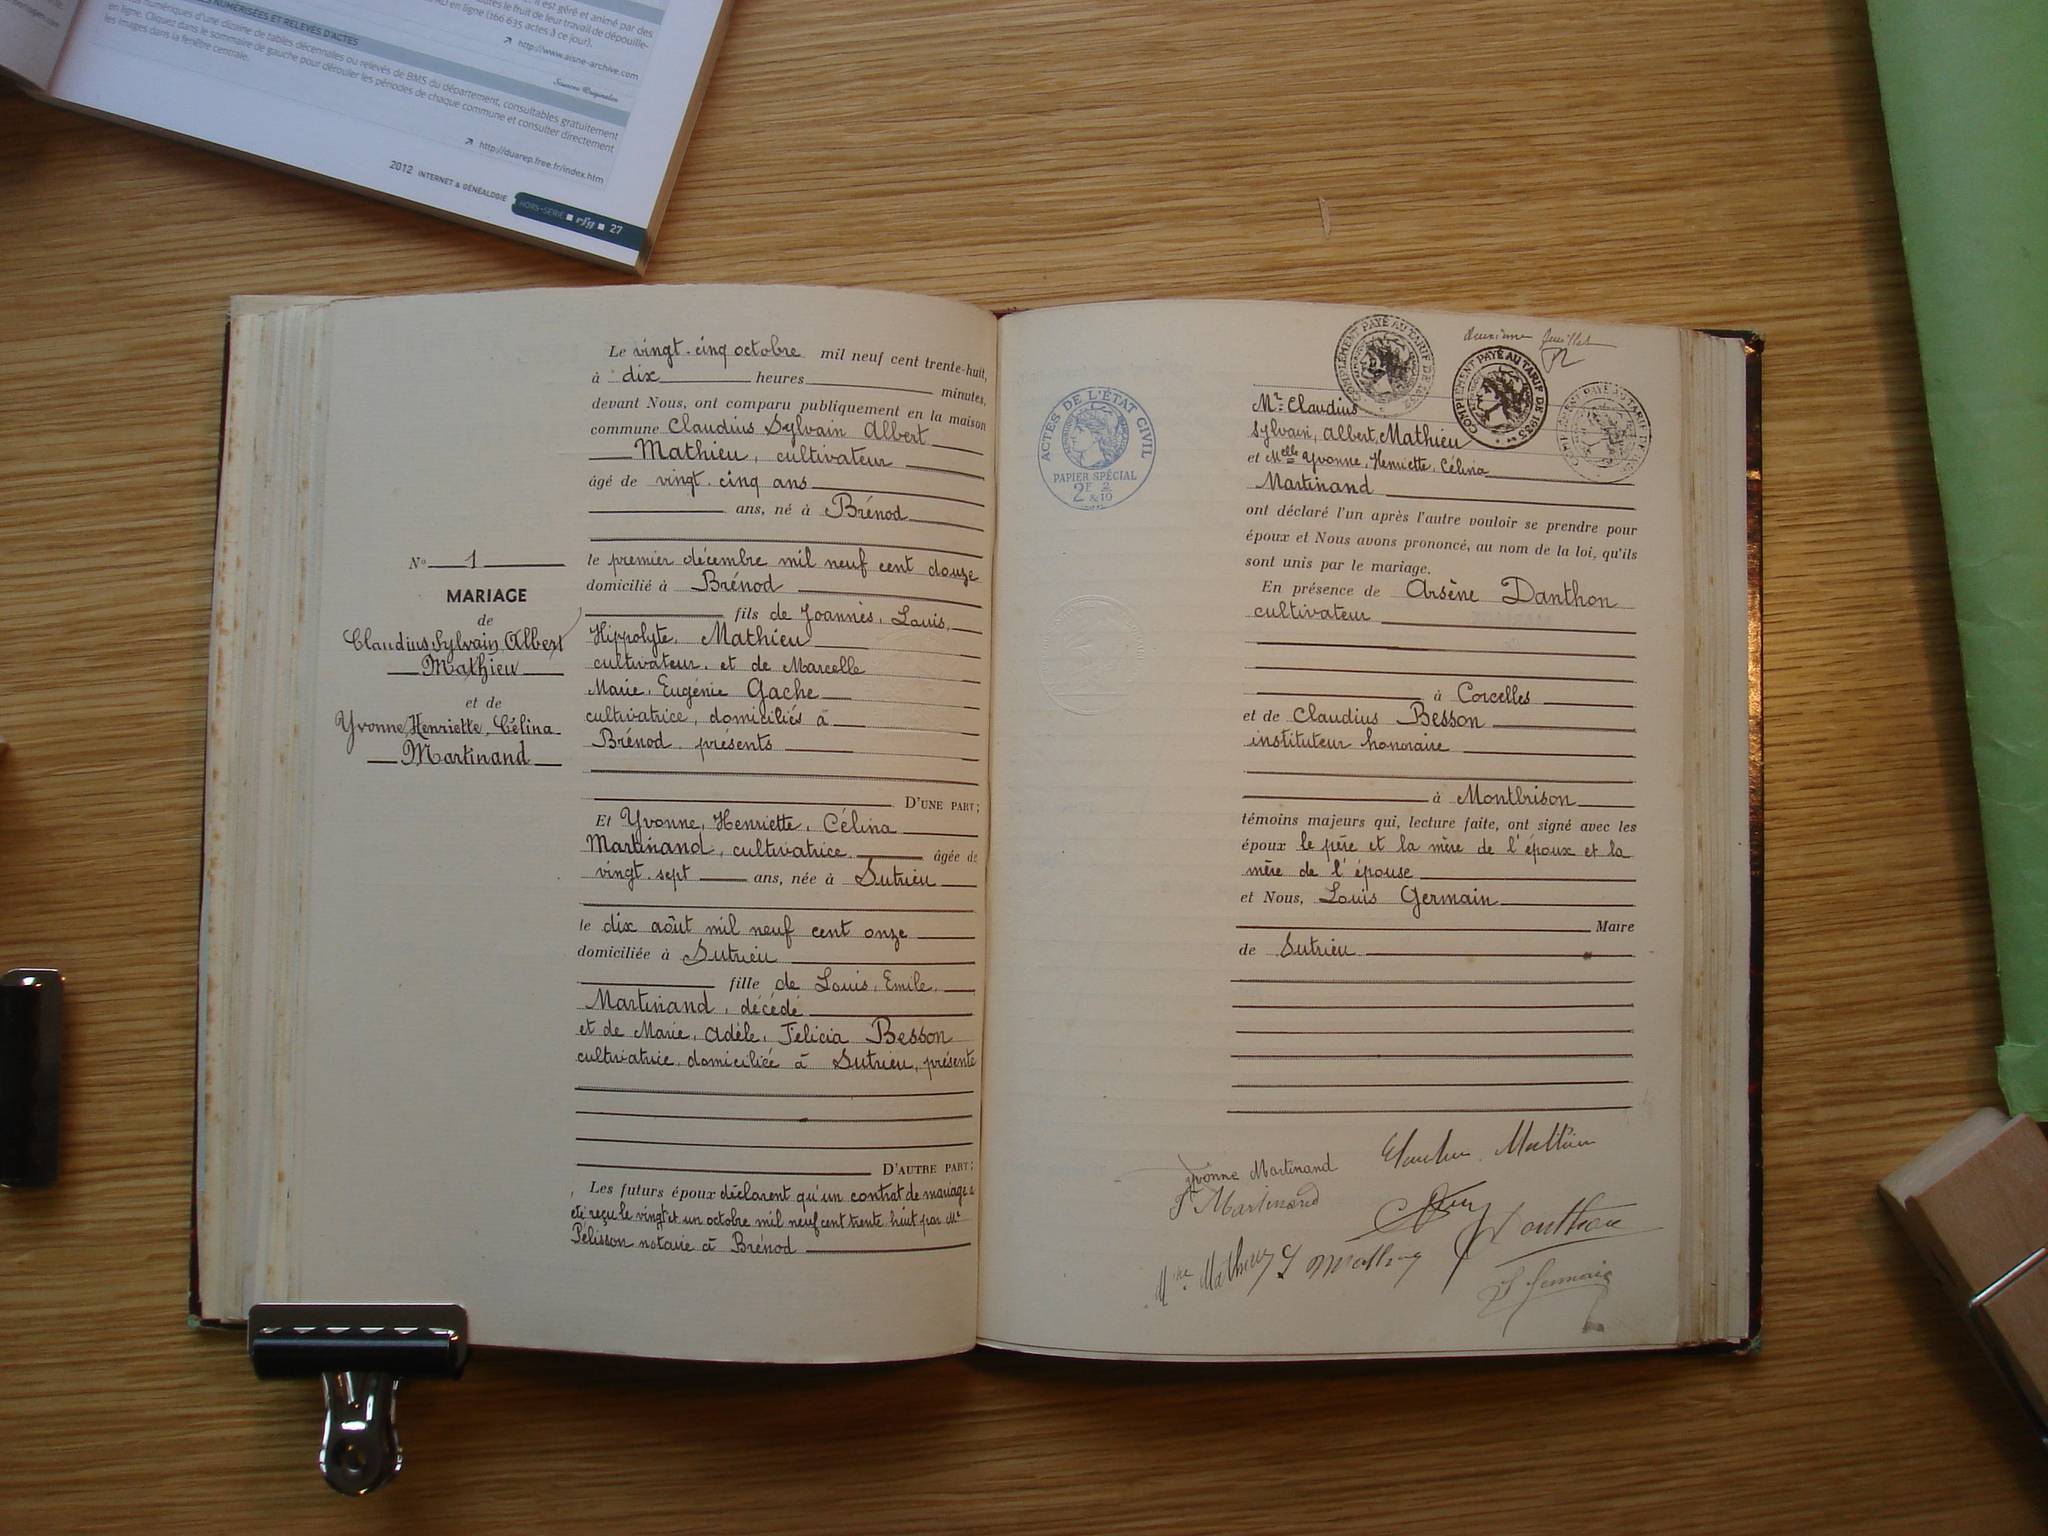 il est géré et animé par des
le fruit de leur travail de dépouille-
en ligne (166 635 actes à ce jour).
http://www.aisne-archive.com
NUMÉRISÉES ET RELEVÉS D'ACTES
numériques d'une dizaine de tables décennales ou relevés de BMS du département, consultables gratuitement
en ligne. Cliquez dans le sommaire de gauche pour dérouler les périodes de chaque commune et consulter directement
les images dans la fenêtre centrale.
http://duarep.free.fr/index.htm
2012 INTERNET & GÉNÉALOGIE
HORS-SÉRIE rfg 27
Le vingt-cinq octobre mil neuf cent trente-huit,
à dix heures minutes,
devant Nous, ont comparu publiquement en la maison
commune Claudius Sylvain Albert
Mathieu, cultivateur
âgé de vingt-cinq ans
ans, né à Brénod
le premier décembre mil neuf cent douze
domicilié à Brénod
fils de Joannès, Louis,
Hippolyte, Mathieu
cultivateur, et de Marcelle
Marie, Eugénie Gache
cultivatrice, domiciliés à
Brénod, présents
D'UNE PART;
Et Yvonne, Henriette, Célina
Martinand, cultivatrice âgée de
vingt-sept ans, née à Sutrieu
le dix août mil neuf cent onze
domiciliée à Sutrieu
fille de Louis, Emile,
Martinand, décédé
et de Marie, Adèle, Félicia Besson
cultivatrice, domiciliée à Sutrieu, présente
D'AUTRE PART;
Les futurs époux déclarent qu'un contrat de mariage a
été reçu le vingt et un octobre mil neuf cent trente huit par Me
Pélisson notaire à Brénod
No 1
MARIAGE
de
Claudius Sylvain Albert
Mathieu
et de
Yvonne, Henriette, Célina
Martinand
deuxième feuillet
COMPLÉMENT PAYÉ AU TARIF DE
COMPLÉMENT PAYÉ AU TARIF DE
COMPLÉMENT PAYÉ AU TARIF DE
ACTES DE L'ÉTAT CIVIL
PAPIER SPÉCIAL
2F & 2/10
Mr Claudius
Sylvain, Albert, Mathieu
et Melle Yvonne, Henriette, Célina
Martinand
ont déclaré l'un après l'autre vouloir se prendre pour
époux et Nous avons prononcé, au nom de la loi, qu'ils
sont unis par le mariage.
En présence de Arsène Danthon
cultivateur
à Corcelles
et de Claudius Besson
instituteur honoraire
à Montbrison
témoins majeurs qui, lecture faite, ont signé avec les
époux le père et la mère de l'époux et la
mère de l'épouse
et Nous, Louis Germain
Maire
de Sutrieu
Yvonne Martinand Claudius Mathieu
F Martinand
Danthon
Mme Mathieu J Mathieu
L Germain